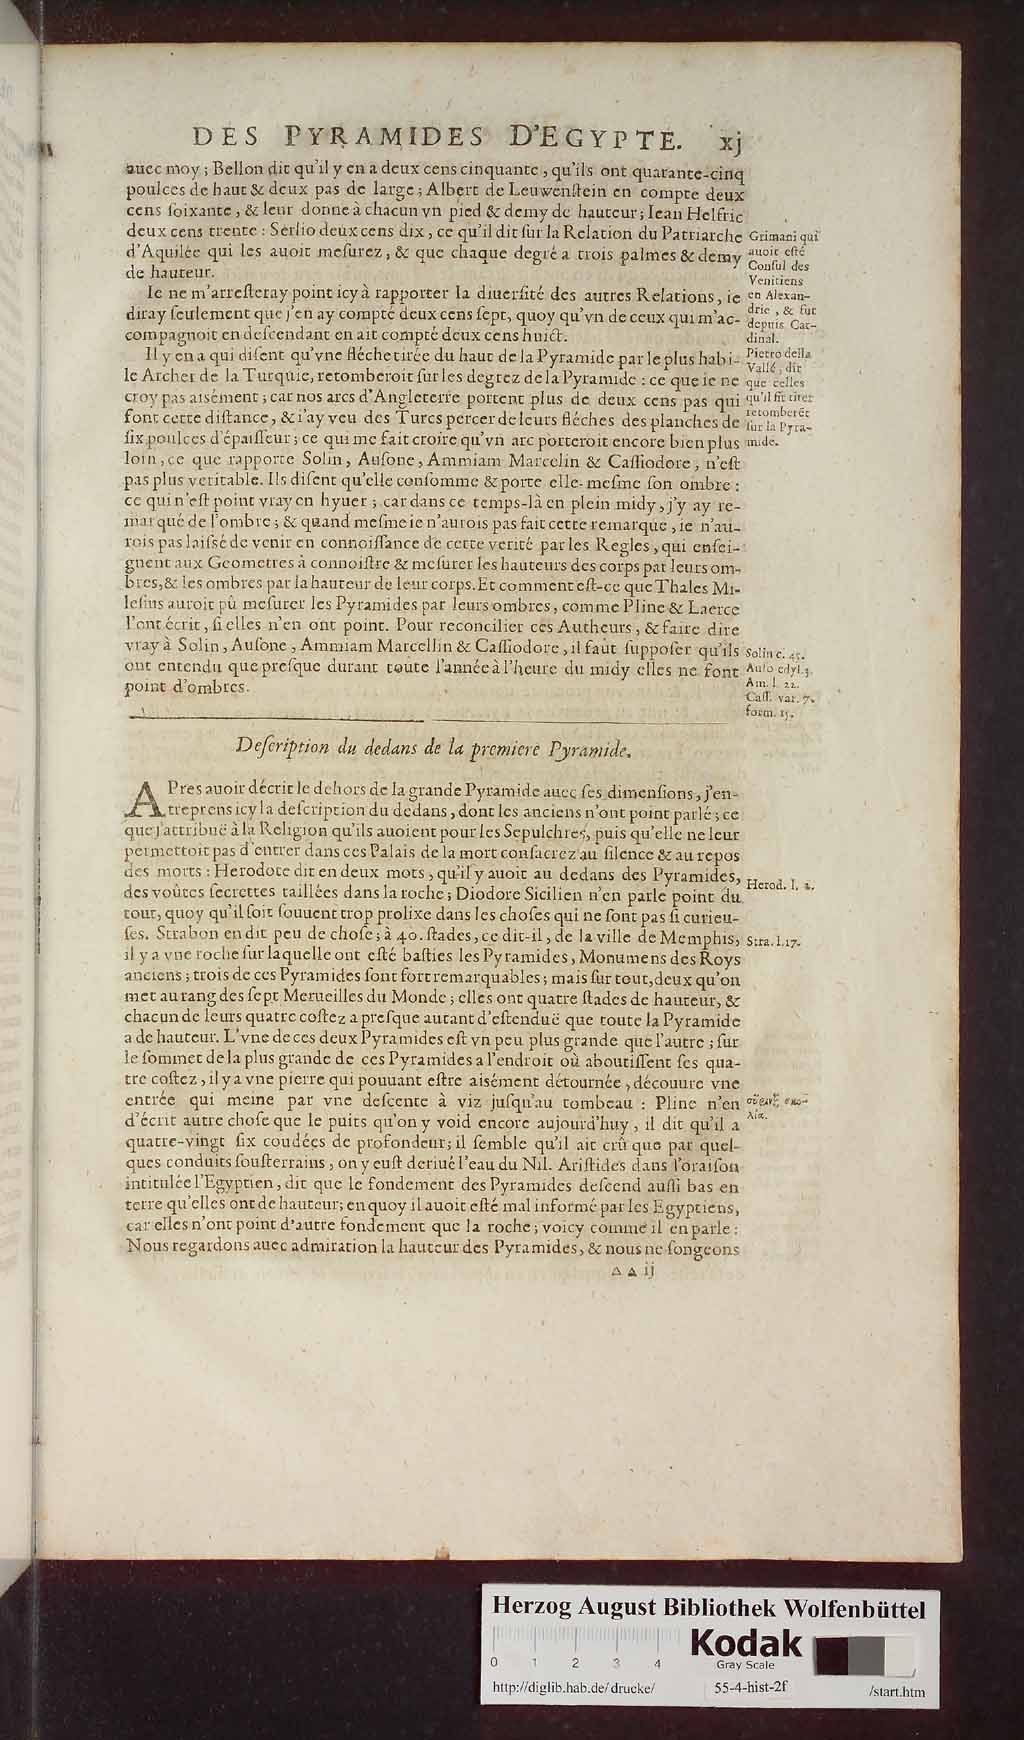 DES PYRAMIDES D'EGYPTE. xj
auec moy ; Bellon dit qu'il y en a deux cens cinquante, qu'ils ont quarante-cinq
poulces de haut & deux pas de large ; Albert de Leuwenſtein en compte deux
cens ſoixante, & leur donne à chacun vn pied & demy de hauteur ; Iean Helfric
deux cens trente : Serlio deux cens dix, ce qu'il dit ſur la Relation du Patriarche
d'Aquilée qui les auoit meſurez, & que chaque degré a trois palmes & demy
de hauteur.
Ie ne m'arreſteray point icy à rapporter la diuerſité des autres Relations, ie
diray ſeulement que j'en ay compté deux cens ſept, quoy qu'vn de ceux qui m'ac-
compagnoit en deſcendant en ait compté deux cens huict.
Il y en a qui diſent qu'vne fléche tirée du haut de la Pyramide par le plus habi-
le Archer de la Turquie, retomberoit ſur les degrez de la Pyramide : ce que ie ne
croy pas aisément ; car nos arcs d'Angleterre portent plus de deux cens pas qui
font cette diſtance, & i'ay veu des Turcs percer de leurs fléches des planches de
ſix poulces d'épaiſſeur ; ce qui me fait croire qu'vn arc porteroit encore bien plus
loin, ce que rapporte Solin, Auſone, Ammiam Marcelin & Caſſiodore, n'eſt
pas plus veritable. Ils diſent qu'elle conſomme & porte elle-meſme ſon ombre :
ce qui n'eſt point vray en hyuer ; car dans ce temps-là en plein midy, j'y ay re-
marqué de l'ombre ; & quand meſme ie n'aurois pas fait cette remarque, ie n'au-
rois pas laiſsé de venir en connoiſſance de cette verité par les Regles, qui enſei-
gnent aux Geometres à connoiſtre & meſurer les hauteurs des corps par leurs om-
bres, & les ombres par la hauteur de leur corps. Et comment eſt-ce que Thales Mi-
leſius auroit pû meſurer les Pyramides par leurs ombres, comme Pline & Laerce
l'ont écrit, ſi elles n'en ont point. Pour reconcilier ces Autheurs, & faire dire
vray à Solin, Auſone, Ammiam Marcellin & Caſſiodore, il faut ſuppoſer qu'ils
ont entendu que preſque durant toute l'année à l'heure du midy elles ne font
point d'ombres.
Grimani qui
auoit eſté
Conſul des
Venitiens
en Alexan-
drie, & fut
depuis Car-
dinal.
Pietro della
Vallé, dit
que celles
qu'il fit tirer
retomberēt
ſur la Pyra-
mide.
Solin c. 45.
Auſo edyl. 3.
Am. l. 22.
Caſſ. var. 7.
form. 15.
Deſcription du dedans de la premiere Pyramide.
APres auoir décrit le dehors de la grande Pyramide auec ſes dimenſions, j'en-
treprens icy la deſcription du dedans, dont les anciens n'ont point parlé ; ce
que j'attribuë à la Religion qu'ils auoient pour les Sepulchres, puis qu'elle ne leur
permettoit pas d'entrer dans ces Palais de la mort conſacrez au ſilence & au repos
des morts : Herodote dit en deux mots, qu'il y auoit au dedans des Pyramides,
des voûtes ſecrettes taillées dans la roche ; Diodore Sicilien n'en parle point du
tout, quoy qu'il ſoit ſouuent trop prolixe dans les choſes qui ne ſont pas ſi curieu-
ſes. Strabon en dit peu de choſe ; à 40. ſtades, ce dit-il, de la ville de Memphis,
il y a vne roche ſur laquelle ont eſté baſties les Pyramides, Monumens des Roys
anciens ; trois de ces Pyramides ſont fort remarquables ; mais ſur tout, deux qu'on
met au rang des ſept Merueilles du Monde ; elles ont quatre ſtades de hauteur, &
chacun de leurs quatre coſtez a preſque autant d'eſtenduë que toute la Pyramide
a de hauteur. L'vne de ces deux Pyramides eſt vn peu plus grande que l'autre ; ſur
le ſommet de la plus grande de ces Pyramides a l'endroit où aboutiſſent ſes qua-
tre coſtez, il y a vne pierre qui pouuant eſtre aisément détournée, découure vne
entrée qui meine par vne deſcente à viz juſqu'au tombeau : Pline n'en
d'écrit autre choſe que le puits qu'on y void encore aujourd'huy, il dit qu'il a
quatre-vingt ſix coudées de profondeur ; il ſemble qu'il ait crû que par quel-
ques conduits ſouſterrains, on y euſt deriué l'eau du Nil. Ariſtides dans l'oraiſon
intitulée l'Egyptien, dit que le fondement des Pyramides deſcend auſſi bas en
terre qu'elles ont de hauteur ; en quoy il auoit eſté mal informé par les Egyptiens,
car elles n'ont point d'autre fondement que la roche ; voicy comme il en parle :
Nous regardons auec admiration la hauteur des Pyramides, & nous ne ſongeons
Herod. l. 2.
Stra. l. 17.
ſκο-
λία.
A A ij
Herzog August Bibliothek Wolfenbüttel
0 1 2 3 4
Kodak
Gray Scale
http://diglib.hab.de/drucke/ 55-4-hist-2f /start.htm